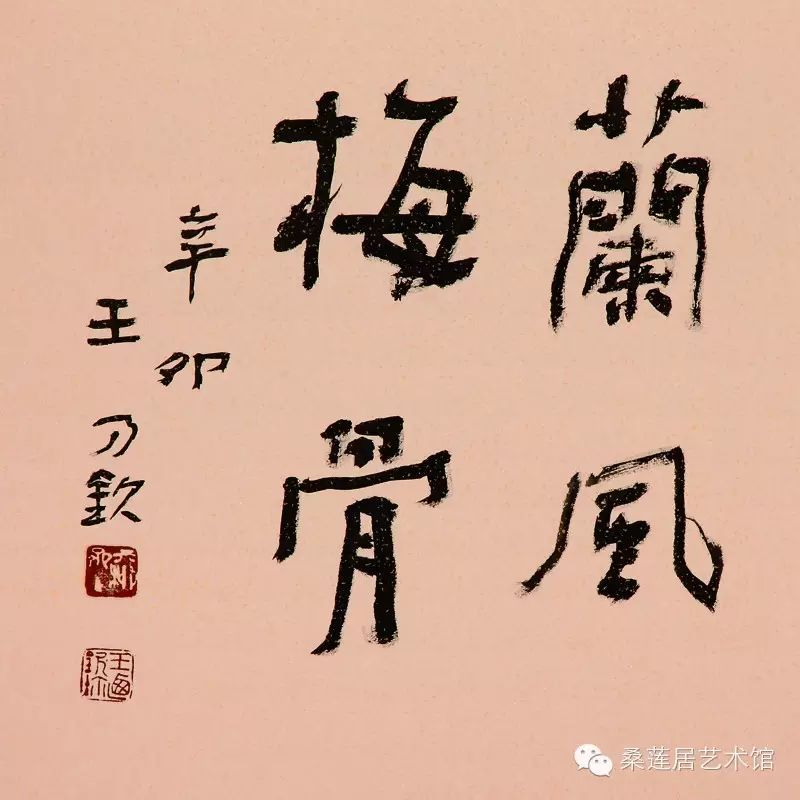 蘭風
梅骨
辛卯
王乃欽
桑莲居艺术馆